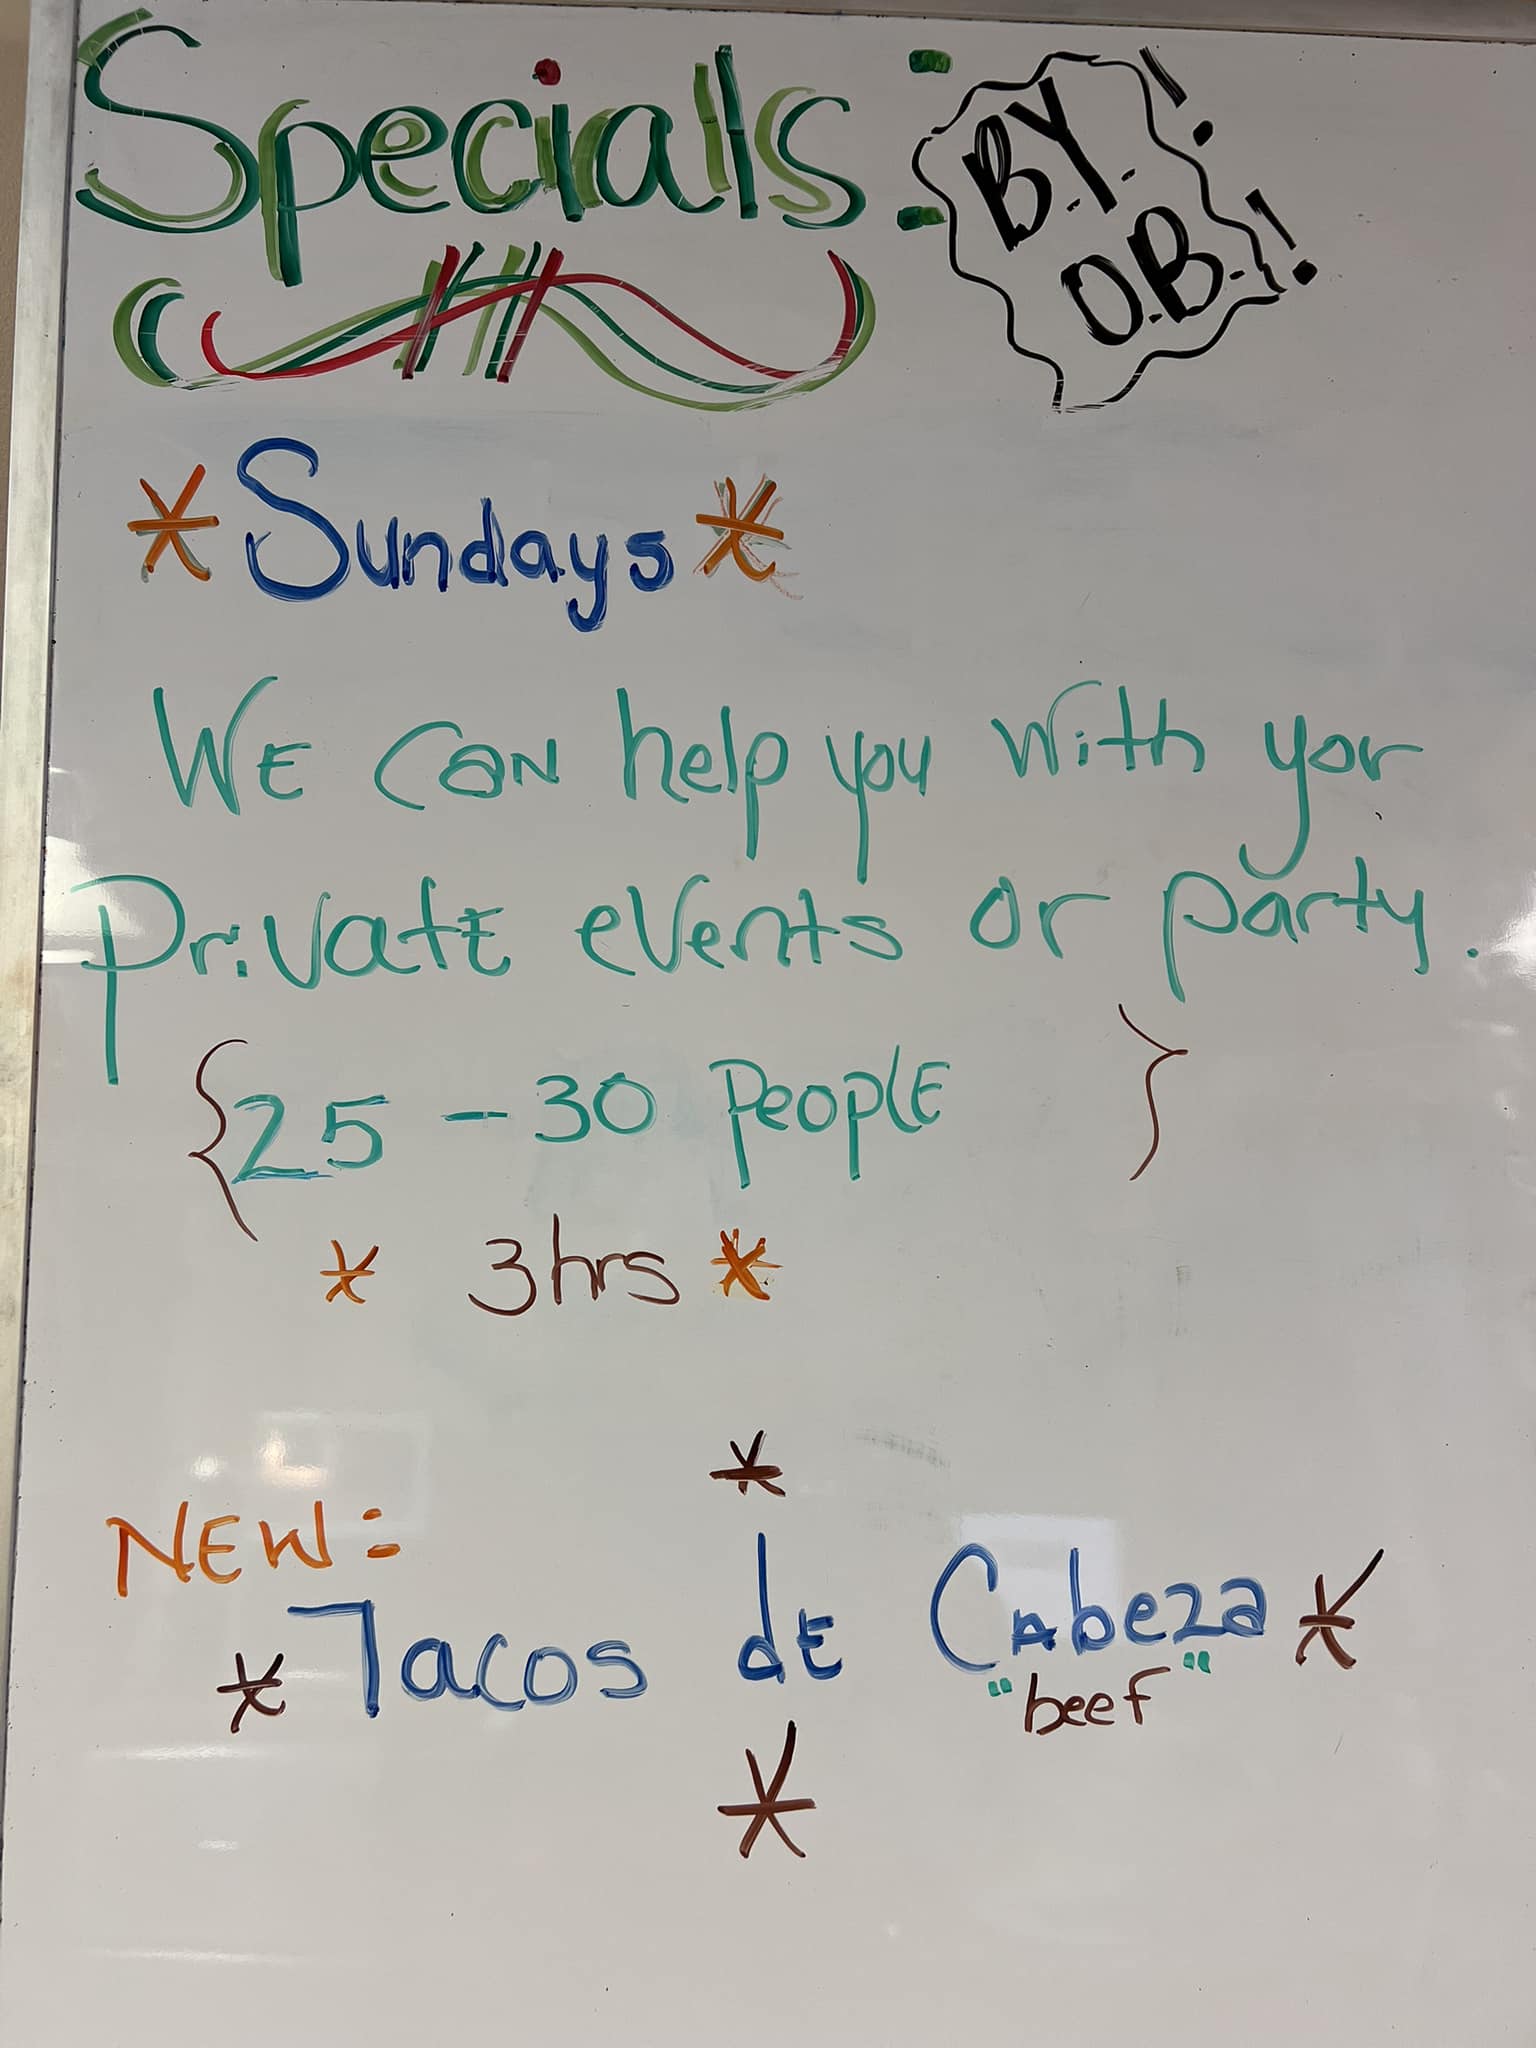 Specials:
B.Y.!
O.B.!
*Sundays*
WE CAN help you with yor
Private events or party.
{25 - 30 PEOPLE}
* 3hrs *
NEW:
*
* Tacos dE CAbeza *
"beef"
*